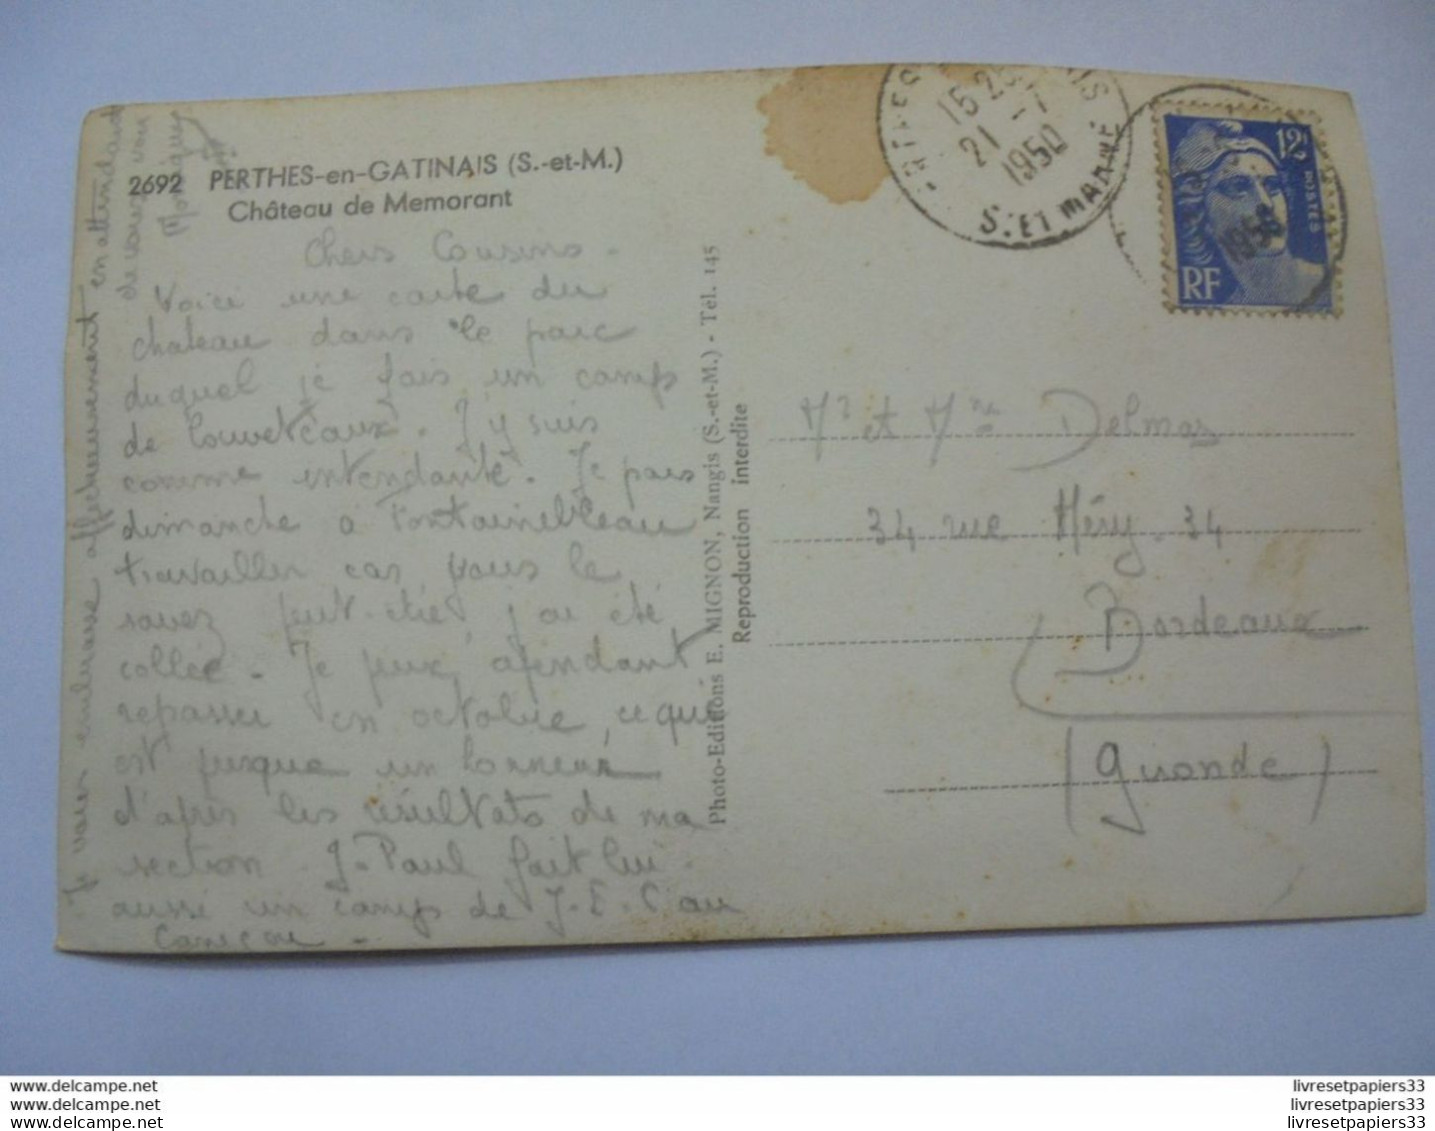 2692 PERTHES-en-GATINAIS (S.-et-M.)
Château de Memorant
Chers Cousins -
Voici une carte du
chateau dans le parc
duquel je fais un camp
de louveteaux. J'y suis
comme intendante. Je pars
dimanche à Fontainebleau
travailler car vous le
savez peut-être, j'ai été
collée. Je peux, cependant
repasser en octobre, ce qui
est presque un honneur
d'après les résultats de ma
section. J-Paul fait lui
aussi un camp de J.E.C au
Je vous embrasse affectueusement en attendant
de vous voir
Monique
Photo-Editions E. MIGNON, Nangis (S.-et-M.) - Tél. 145
Reproduction interdite
15 25
21 -7
1950
S. ET MARNE
12F
POSTES
RF
1950
Mr et Mme Delmas
34 rue Héry. 34
Bordeaux
(Gironde)
www.delcampe.net
www.delcampe.net
www.delcampe.net
livresetpapiers33
livresetpapiers33
livresetpapiers33